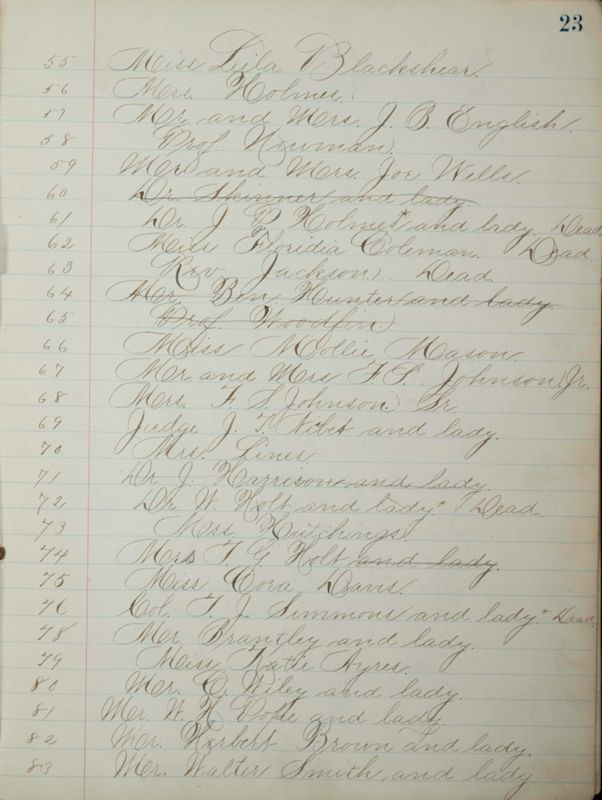 23
55 Miss Leila Blackshear.
56 Mrs. Holmes.
57 Mr. and Mrs. J. B. English.
58 Prof. Newman
59 Mr. and Mrs. Joe Wells.
60 Dr. Skinner and lady.
61 Dr. J. P. Holmes* and lady. Dead
62 Miss Floridia Coleman. Dead
63 Rev. Jackson Dead.
64 Mr. Ben Hunter and lady.
65 Prof. Woodfin
66 Miss Mollie Mason.
67 Mr and Mrs F. S. Johnson, Jr.
68 Mrs. F. S. Johnson Sr.
69 Judge J. T. and lady.
70 Mrs. Lines
71 Dr J. Harrison and lady.
72 Dr W. Holt and lady* Dead
73 Mrs Hutchings
74 Mrs T. G. Holt and lady.
75 Miss Cora Davis.
76 Col. T. J. Simmons and lady* Dead.
78 Mr. Brantley and lady.
79 Miss Katie Ayres.
80 Mr. C. Wiley and lady.
81 Mr. W. H. Pope and lady
82 Mr. Herbert Brown and lady.
83 Mr. Walter Smith and lady